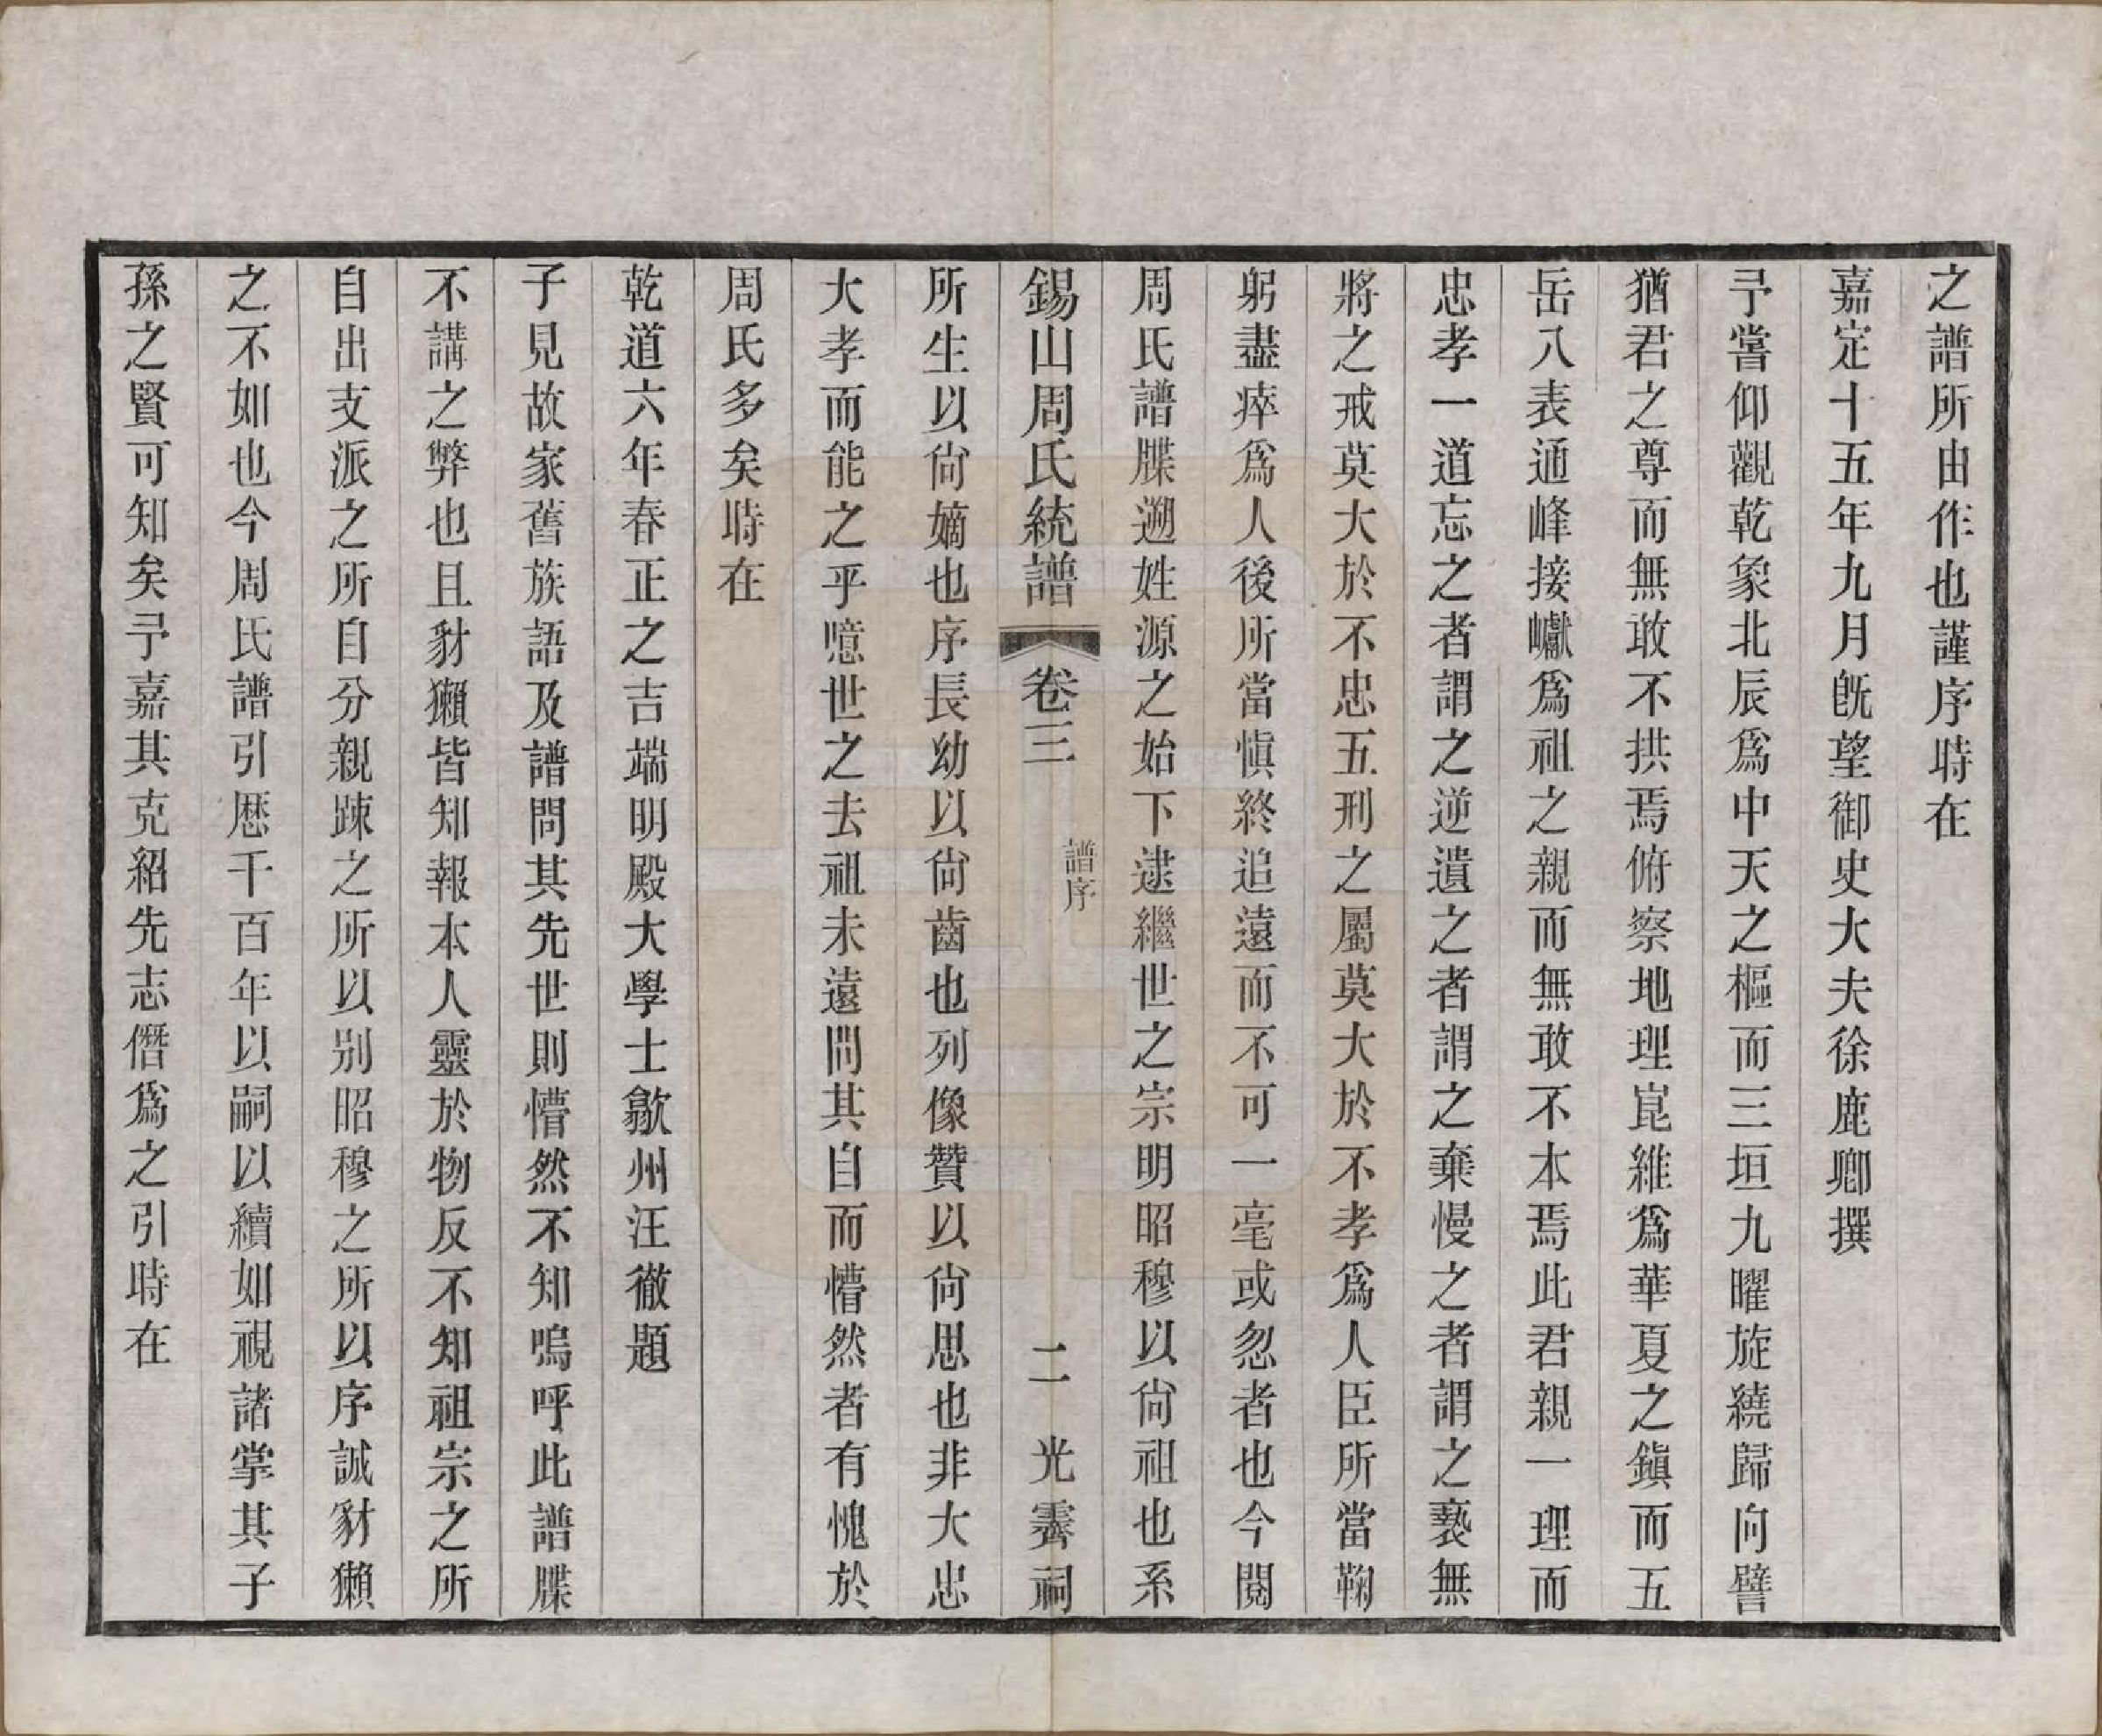 之譜所由作也謹序時在
嘉定十五年九月旣望御史大夫徐鹿卿撰
予嘗仰觀乾象北辰爲中天之樞而三垣九曜旋繞歸向譬
猶君之尊而無敢不拱焉俯察地理崑維爲華夏之鎭而五
岳八表通峰接巘爲祖之親而無敢不本焉此君親一理而
忠孝一道忘之者謂之逆遺之者謂之棄慢之者謂之褻無
將之戒莫大於不忠五刑之屬莫大於不孝爲人臣所當鞠
躬盡瘁爲人後所當愼終追遠而不可一毫或忽者也今閱
周氏譜牒遡姓源之始下逮繼世之宗明昭穆以尙祖也系
錫山周氏統譜 卷三 譜序 二 光霽祠
所生以尙嫡也序長幼以尙齒也列像贊以尙思也非大忠
大孝而能之乎噫世之去祖未遠問其自而懵然者有愧於
周氏多矣時在
乾道六年春正之吉端明殿大學士歙州汪徹題
子見故家舊族語及譜問其先世則懵然不知嗚呼此譜牒
不講之弊也且豺獺皆知報本人靈於物反不知祖宗之所
自出支派之所自分親踈之所以別昭穆之所以序誠豺獺
之不如也今周氏譜引歷千百年以嗣以續如視諸掌其子
孫之賢可知矣予嘉其克紹先志僭爲之引時在